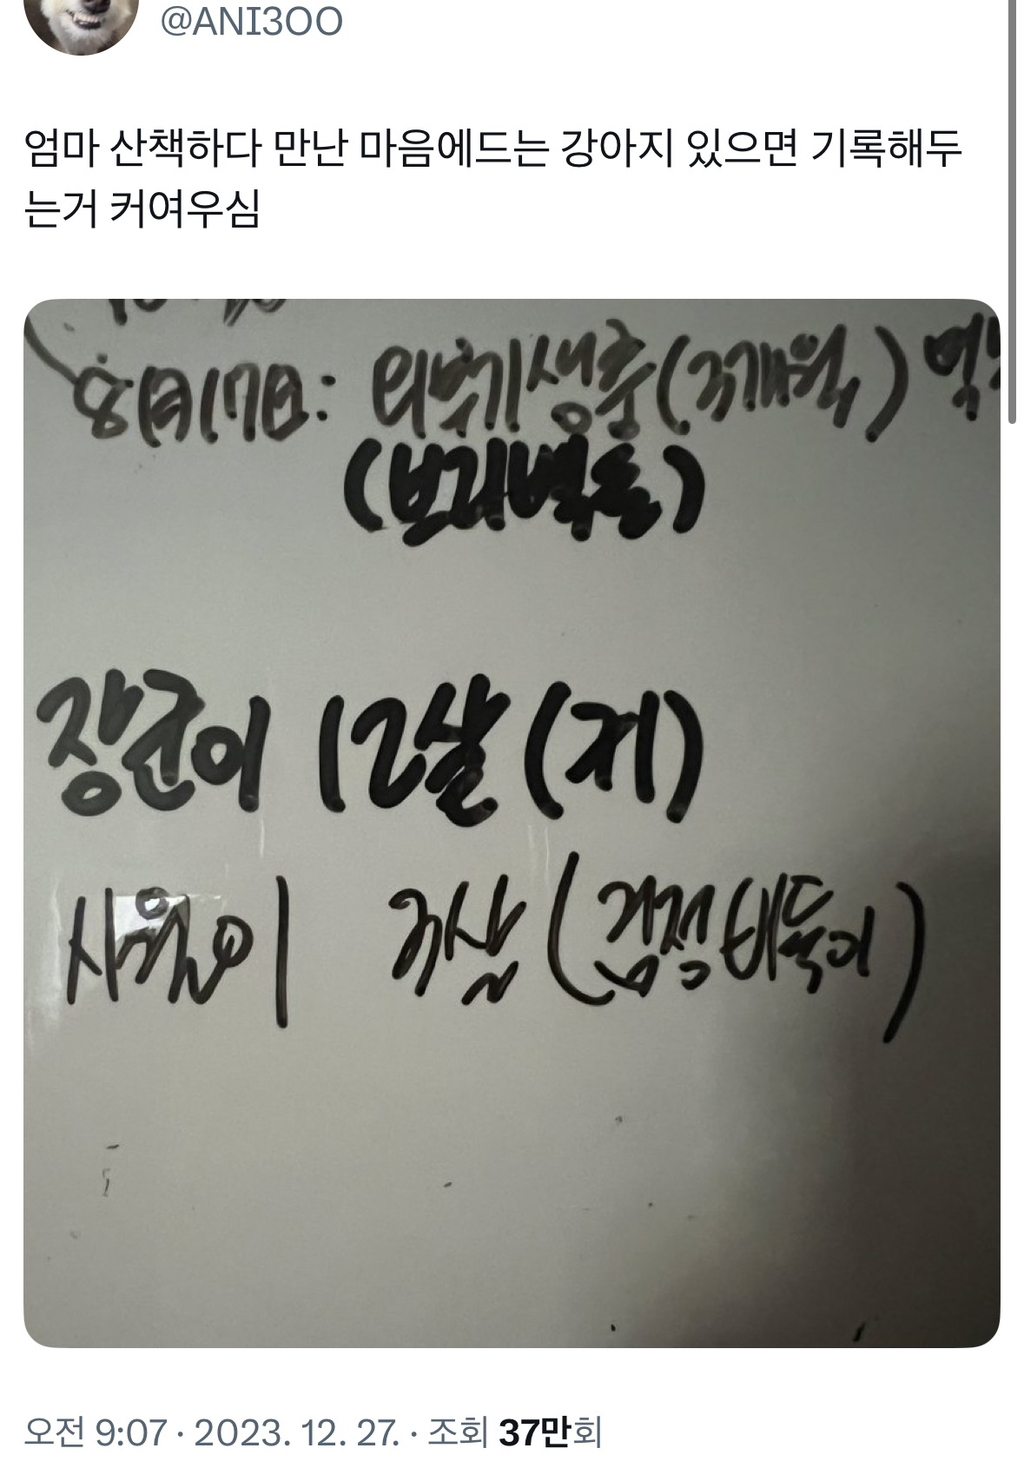 @ANI3OO
엄마 산책하다 만난 마음에드는 강아지 있으면 기록해두
는거 커여우심
8월17일: 외부기생충(3개월)
장군이 12살 (지)
사월이 3살 (검정바둑이)
오전 9:07 · 2023. 12. 27. · 조회 37만회